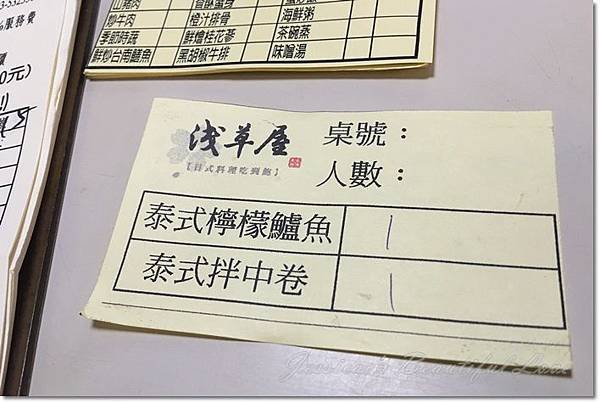 服務費
0元)
炒牛肉 橙汁排骨 海鮮粥
季節時蔬 鮮燴桂花蔘 茶碗蒸
鮮炒台南鱔魚 黑胡椒牛排 味噌湯
浅草屋
【日式料理吃到飽】
桌號：
人數：
泰式檸檬鱸魚 1
泰式拌中卷 1